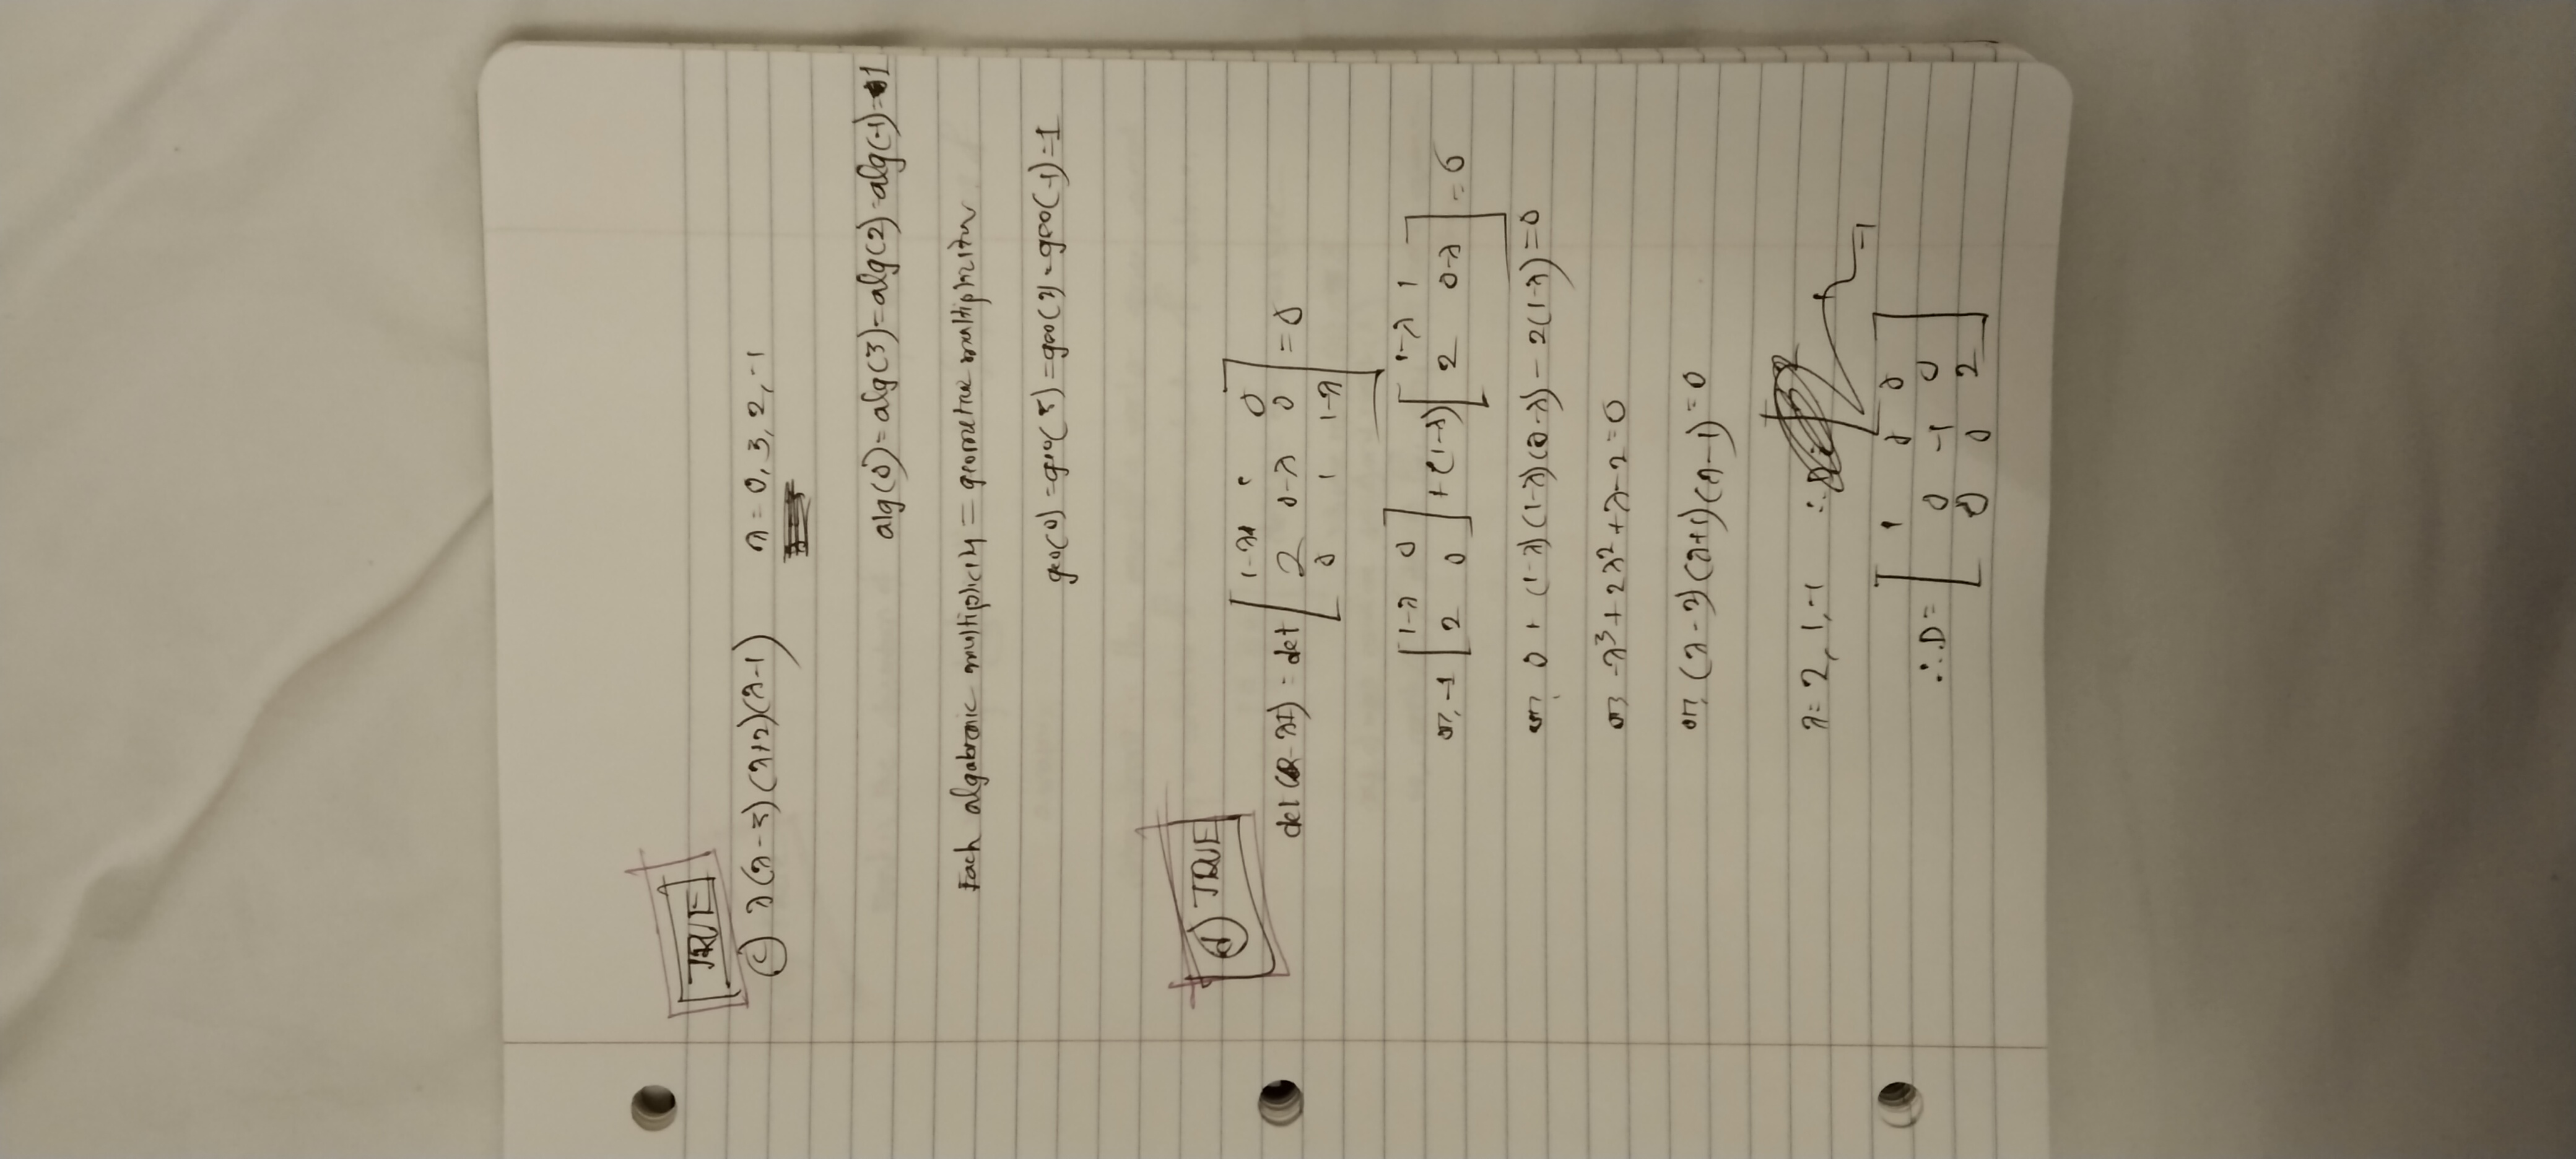 TRUE
(c) λ(λ-3)(λ+2)(λ-1) λ = 0, 3, 2, -1
alg(0) = alg(3) = alg(2) = alg(-1) = 1
Each algabraic multiplicity = geometric multiplicity
geo(0) = geo(3) = geo(2) = geo(-1) = 1
(d) TRUE
det(R-λI) = det [ 1-λ 1 0
2 0-λ 0 ] = 0
0 1 1-λ
or, -1 [ 1-λ 0 ] + (1-λ) [ 1-λ 1 ]
[ 2 0 ] [ 2 0-λ ] = 0
or, 0 + (1-λ)(1-λ)(0-λ) - 2(1-λ) = 0
or, -λ³ + 2λ² + λ - 2 = 0
or, (λ-2)(λ+1)(λ-1) = 0
λ = 2, 1, -1
-1
∴ D = [ 1 0 0
0 -1 0
0 0 2 ]